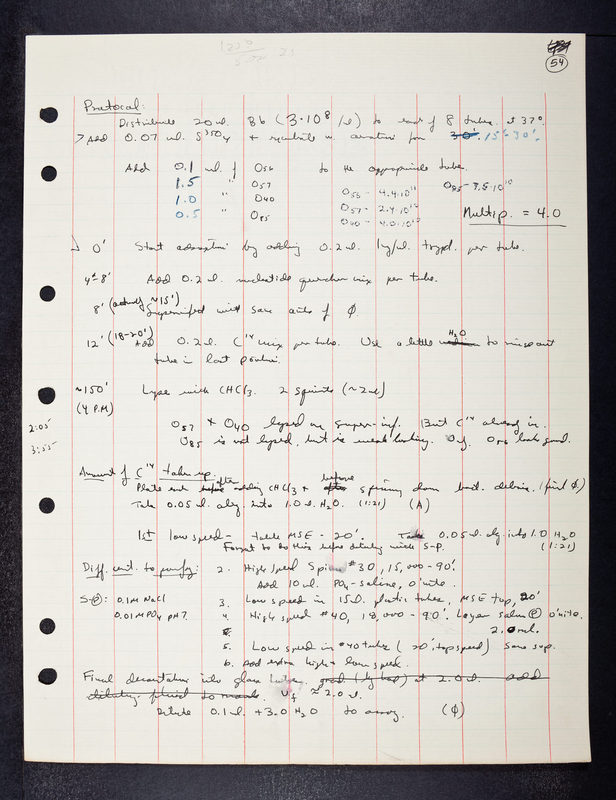 54
Protocol:
Distribute 20 ml. Bb (3·10⁸/ml) to each of 8 tubes at 37°
Add 0.07 ml. S³⁵O₄ + incubate for 30'. 15'-30'.
Add 0.1 ml. of O56 to the appropriate tube.
1.5 " O57 O56 - 4.4·10¹⁰ O85 - 7.5·10¹⁰
1.0 " O40 O57 - 2.4·10¹⁰
0.5 " O85 O40 - 4.0·10¹⁰
Multip. = 4.0
0' Start adsorption by adding 0.2 ml. 1γ/ml. trypt. per tube.
4'-8' Add 0.2 ml. nucleotide mix per tube.
8' (actually ~15') Superinfect with same amts of Ø.
12' (18-20') Add 0.2 ml. C¹⁴ mix per tube. Use a little H₂O to rinse out
tube in last portion.
~150' Lyse with CHCl₃. 2 squirts (~2 ml)
(4 P.M)
2:05
3:55
O57 + O40 lysed on super-inf. But C¹⁴ already in.
O85 is not lysed, but is weak looking. O56 look good.
Amount of C¹⁴ taken up.
Plate out before after adding CHCl₃ + after before spinning down bact. debris. (first Ø)
Take 0.05 ml. aliq. into 1.0 ml. H₂O. (1:21) (A)
1st low speed - table MSE - 20'. Take 0.05 ml. aliq. into 1.0 H₂O
Forgot to do this before diluting with S-P. (1:21)
Diff. cent. to purify: 2. High speed Spinco #30, 15,000 - 90'.
Add 10 ml. PO₄-saline, o'nite.
S-P: 0.1M NaCl 3. Low speed in 15ml. plastic tubes, MSE top, 20'
0.01M PO₄ pH7. 4. High speed #40, 18,000 - 90'. Layer saline P o'nite.
2.0 ml.
5. Low speed in #40 tubes (20', top speed) Save sup.
6. Add extra high + low speed.
Final decantation into glass tubes. at 2.0 ml. add
Vf ≈ 2.0 ml.
Dilute 0.1 ml. + 3.0 H₂O to assay. (Ø)